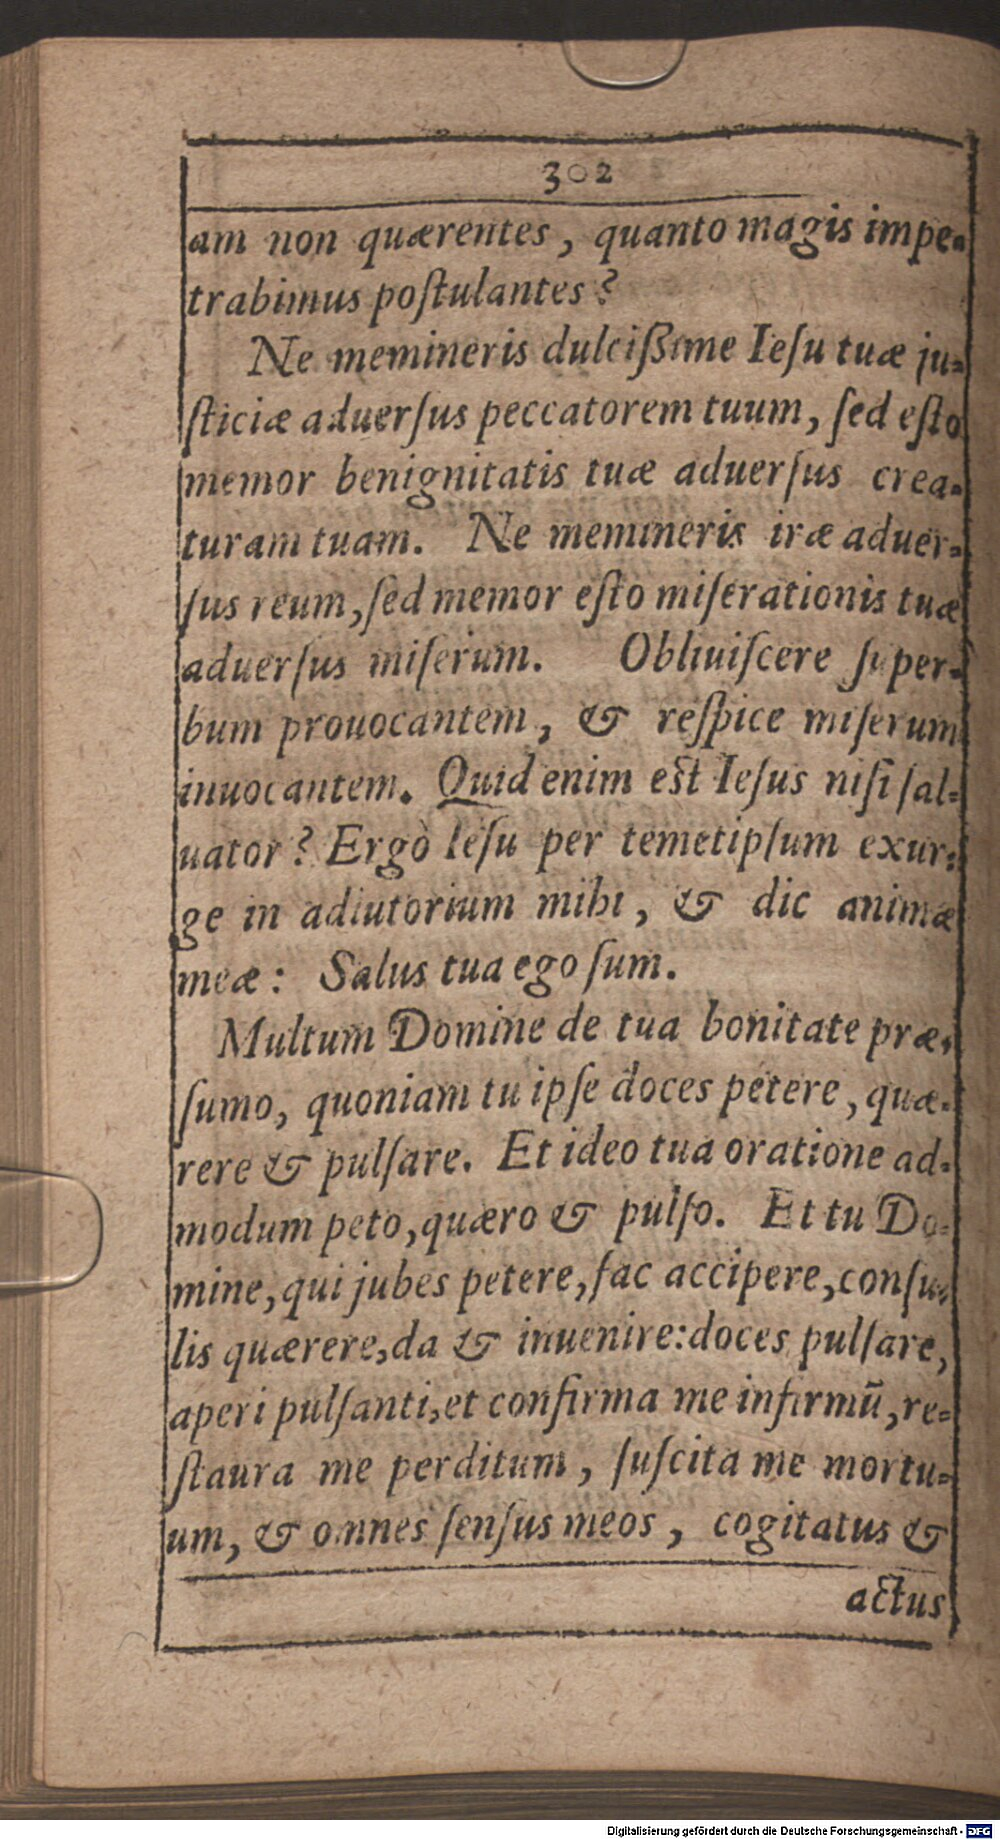 302
am non quærentes, quanto magis impe-
trabimus poſtulantes?
Ne memineris dulciſſime Ieſu tuæ ju-
ſticiæ aduerſus peccatorem tuum, ſed eſto
memor benignitatis tuæ aduerſus crea-
turam tuam. Ne memineris iræ aduer-
ſus reum, ſed memor eſto miſerationis tuæ
aduerſus miſerum. Obliuiſcere ſuper-
bum prouocantem, & reſpice miſerum
inuocantem. Quid enim eſt Ieſus niſi ſal-
uator? Ergò Ieſu per temetipſum exur-
ge in adiutorium mihi, & dic animæ
meæ: Salus tua ego ſum.
Multum Domine de tua bonitate præ-
ſumo, quoniam tu ipſe doces petere, quæ-
rere & pulſare. Et ideo tua oratione ad-
modum peto, quæro & pulſo. Et tu Do-
mine, qui jubes petere, fac accipere, conſu-
lis quærere, da & inuenire: doces pulſare,
aperi pulſanti, et confirma me infirmū, re-
ſtaura me perditum, ſuſcita me mortu-
um, & omnes ſenſus meos, cogitatus &
actus
Digitalisierung gefördert durch die Deutsche Forschungsgemeinschaft - DFG